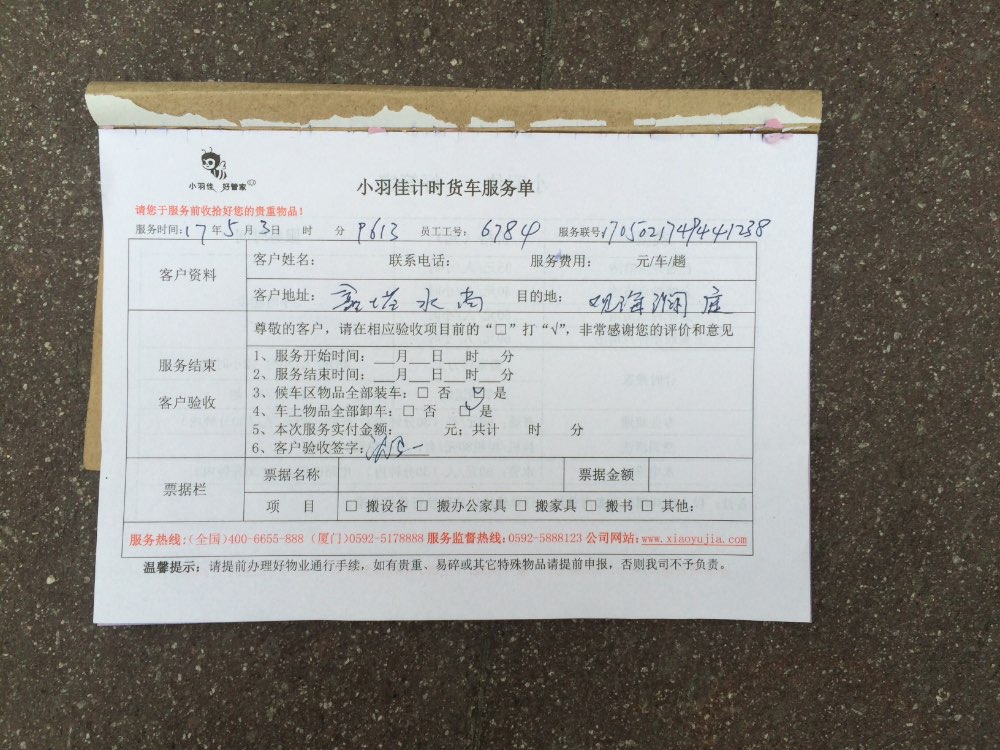 小羽佳 好管家
小羽佳计时货车服务单
请您于服务前收拾好您的贵重物品！
服务时间：17年5月3日 时 分 P613 员工工号：6784 服务联号：
客户资料
客户姓名： 联系电话： 服务费用： 元/车/趟
客户地址： 水岸 目的地： 观海澜庭
服务结束
客户验收
尊敬的客户，请在相应验收项目前的“□”打“√”，非常感谢您的评价和意见
1、服务开始时间：___月___日___时___分
2、服务结束时间：___月___日___时___分
3、候车区物品全部装车：□ 否 ☑ 是
4、车上物品全部卸车：□ 否 ☑ 是
5、本次服务实付金额： 元；共计 时 分
6、客户验收签字：
票据栏
票据名称 票据金额
项 目 □ 搬设备 □ 搬办公家具 □ 搬家具 □ 搬书 □ 其他：
服务热线：(全国)400-6655-888 (厦门)0592-5178888 服务监督热线：0592-5888123 公司网站：www.xiaoyujia.com
温馨提示：请提前办理好物业通行手续，如有贵重、易碎或其它特殊物品请提前申报，否则我司不予负责。